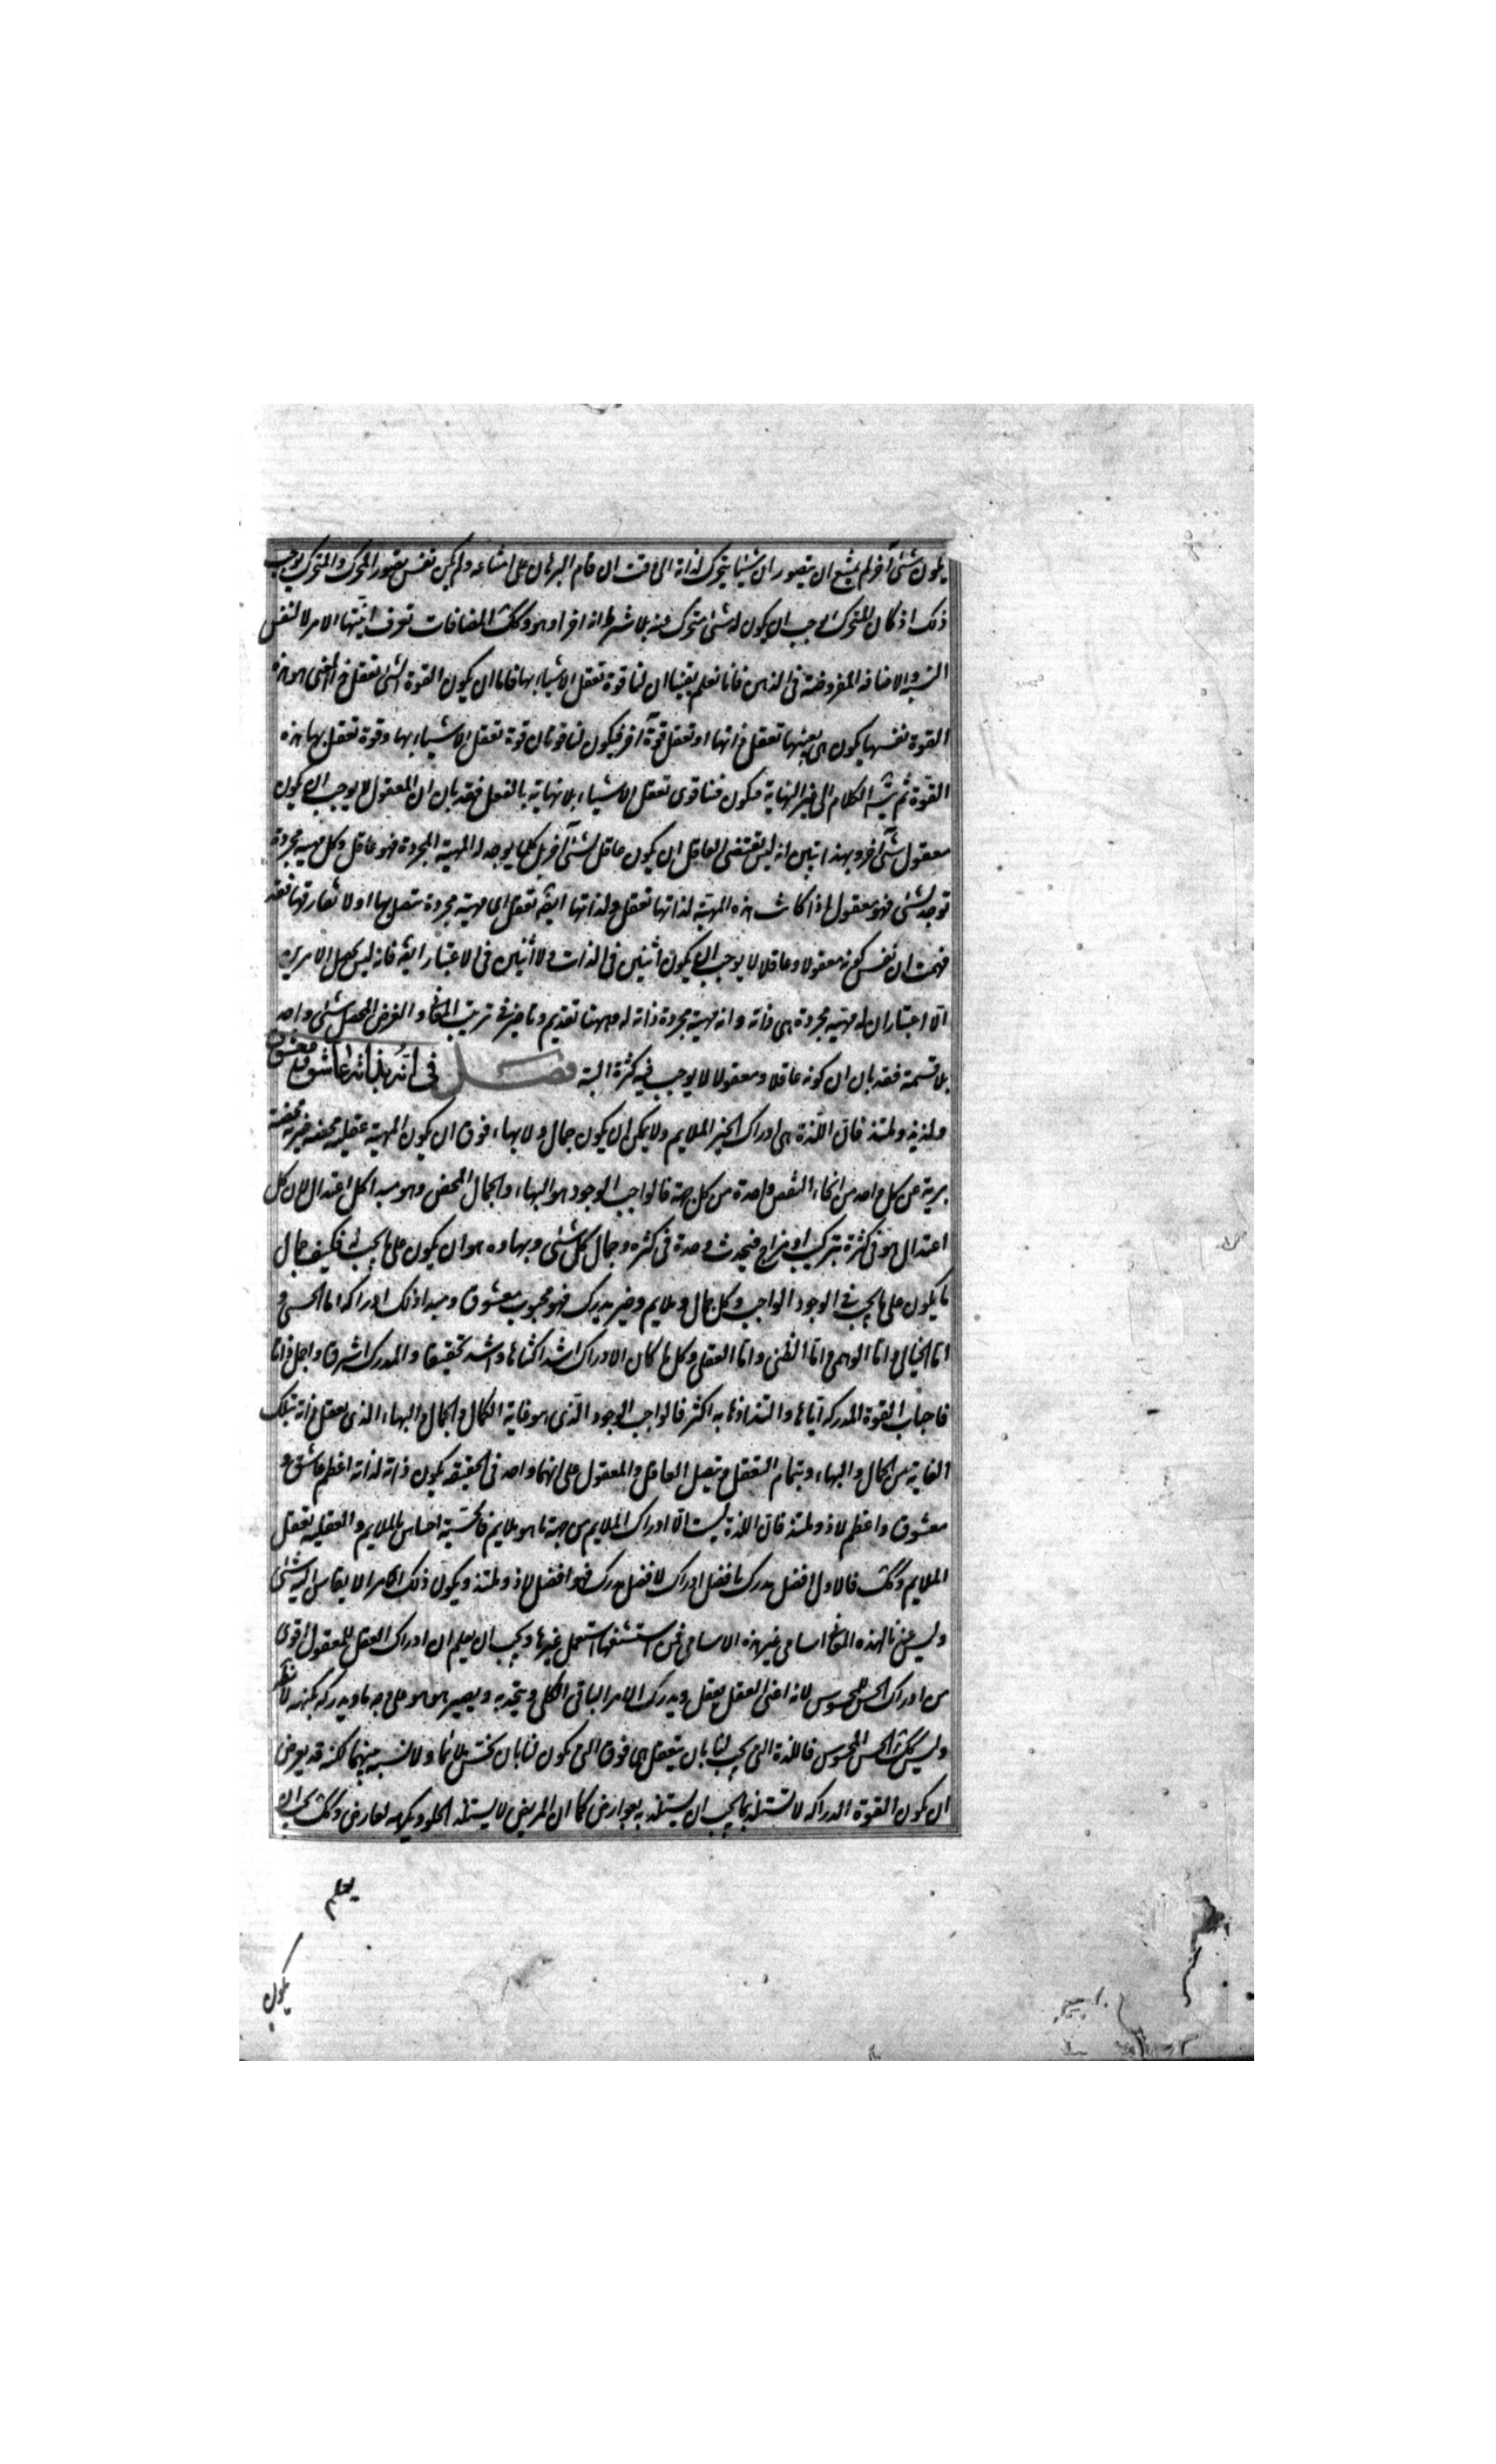 يكون شئ آخر لم يمتنع ان يتصور ان شيئا يتحرك لذاته الى وقت ان قام البرهان على امتناعه ولم يكن نفس تصور المحرك والمتحرك يوجب
ذلك اذ كان المتحرك يوجب ان يكون له شئ متحرك عنه بلا شرط انه آخر او هو وكك المضافات تعرف اثنينيتها لامر لا لنفس
النسبة والاضافة المفروضة فى الذهن فانا نعلم يقينا ان لنا قوة نعقل الاشياء بها فاما ان يكون القوة التى نعقل هذا المعنى هو هذه
القوة نفسها يكون هى بعينها تعقل ذاتها او تعقل قوة آخر فيكون لنا قوتان قوة نعقل الاشياء بها وقوة نعقل بها هذه
القوة ثم يتسلسل الكلام الى غير النهاية فيكون فينا قوى تعقل الاشياء بلا نهاية بالفعل فقد بان ان المعقول لا يوجب ان يكون
معقول شئ آخر وبهذا تبين انه ليس يقتضى العاقل ان يكون عاقل لشئ آخر بل كلما يوجد له المهية المجردة فهو عاقل وكل مهية مجردة
توجد لشئ فهو معقول اذا كانت هذه المهية لذاتها تعقل ولذاتها ايضا تعقل اى مهية مجردة تتصل بها او لا تفارقها فقد
فهمت ان نفس كونه معقولا وعاقلا لا يوجب ان يكون اثنين فى الذات ولا اثنين فى الاعتبار ايضا فانه ليس يحصل الامرين
الا اعتبار ان له مهية مجردة هى ذاته وانه مهية مجردة ذاته له وههنا تقديم وتاخير فى ترتيب المعانى والغرض المحصل شئ واحد
بلا قسمة فقد بان ان كونه عاقلا ومعقولا لا يوجب فيه كثرة البتة فصل فى انه بذاته عاشق ومعشوق
ولذيذ وملتذ فان اللذة هى ادراك الخير الملايم ولا يمكن ان يكون جمال ولا بهاء فوق ان يكون المهية عقلية محضة خيرية محضة
برية عن كل واحد من انحاء النقص واحدة من كل جهة فالواجب الوجود هو البهاء والجمال المحض وهو مبدا كل اعتدال لان كل
اعتدال هو فى كثرة تركيب او مزاج فيحدث وحدة فى كثرة وجمال كل شئ وبهاوه هو ان يكون على ما يجب له فكيف جمال
ما يكون على ما يجب فى الوجود الواجب وكل جمال وملايم وخير مدرك فهو محبوب معشوق ومبدا ذلك ادراكه اما الحسى و
اما الخيالى واما الوهمى واما الظنى واما العقلى وكل ما كان الادراك اشد اكتناها واشد تحقيقا والمدرك اشرف واجل ذاتا
فاحباب القوة المدركة اياها والتذاذها به اكثر فالواجب الوجود الذى هو غاية الكمال والجمال والبهاء الذى يعقل ذاته بتلك
الغاية من الجمال والبهاء وبتمام التعقل ويتصل العاقل والمعقول على انهما واحد فى الحقيقة يكون ذاته لذاته اعظم عاشق و
معشوق واعظم لاذ وملتذ فان اللذة ليست الا ادراك الملايم من جهة ما هو ملايم فالحسية احساس بالملايم والعقلية تعقل
الملايم وكك فالاول افضل مدرك بافضل ادراك لافضل مدرك فهو افضل لاذ وملتذ ويكون ذلك امرا لا يقاس اليه شئ
وليس عندنا لهذه المعانى اسامى غير هذه الاسامى فمن استشنعها استعمل غيرها ويجب ان يعلم ان ادراك العقل للمعقول اقوى
من ادراك الحس للمحسوس لانه اعنى العقل يعقل ويدرك الامر الباقى الكلى ويتحد به ويصير هو هو على وجه ما ويدركه بكنهه لا بظاهره
وليس كك الحس المحسوس فاللذة التى يجب لنا بان نتعقل هى فوق التى يكون لنا بان نحس ملايما ولا نسبة بينهما لكنه قد يعرض
ان يكون القوة الدراكة لا تستلذ بما يجب ان يستلذ به بعوارض كما ان المريض لا يستلذ الحلو ويكرهه لعارض وكك يجب ان
يعلم
يكون